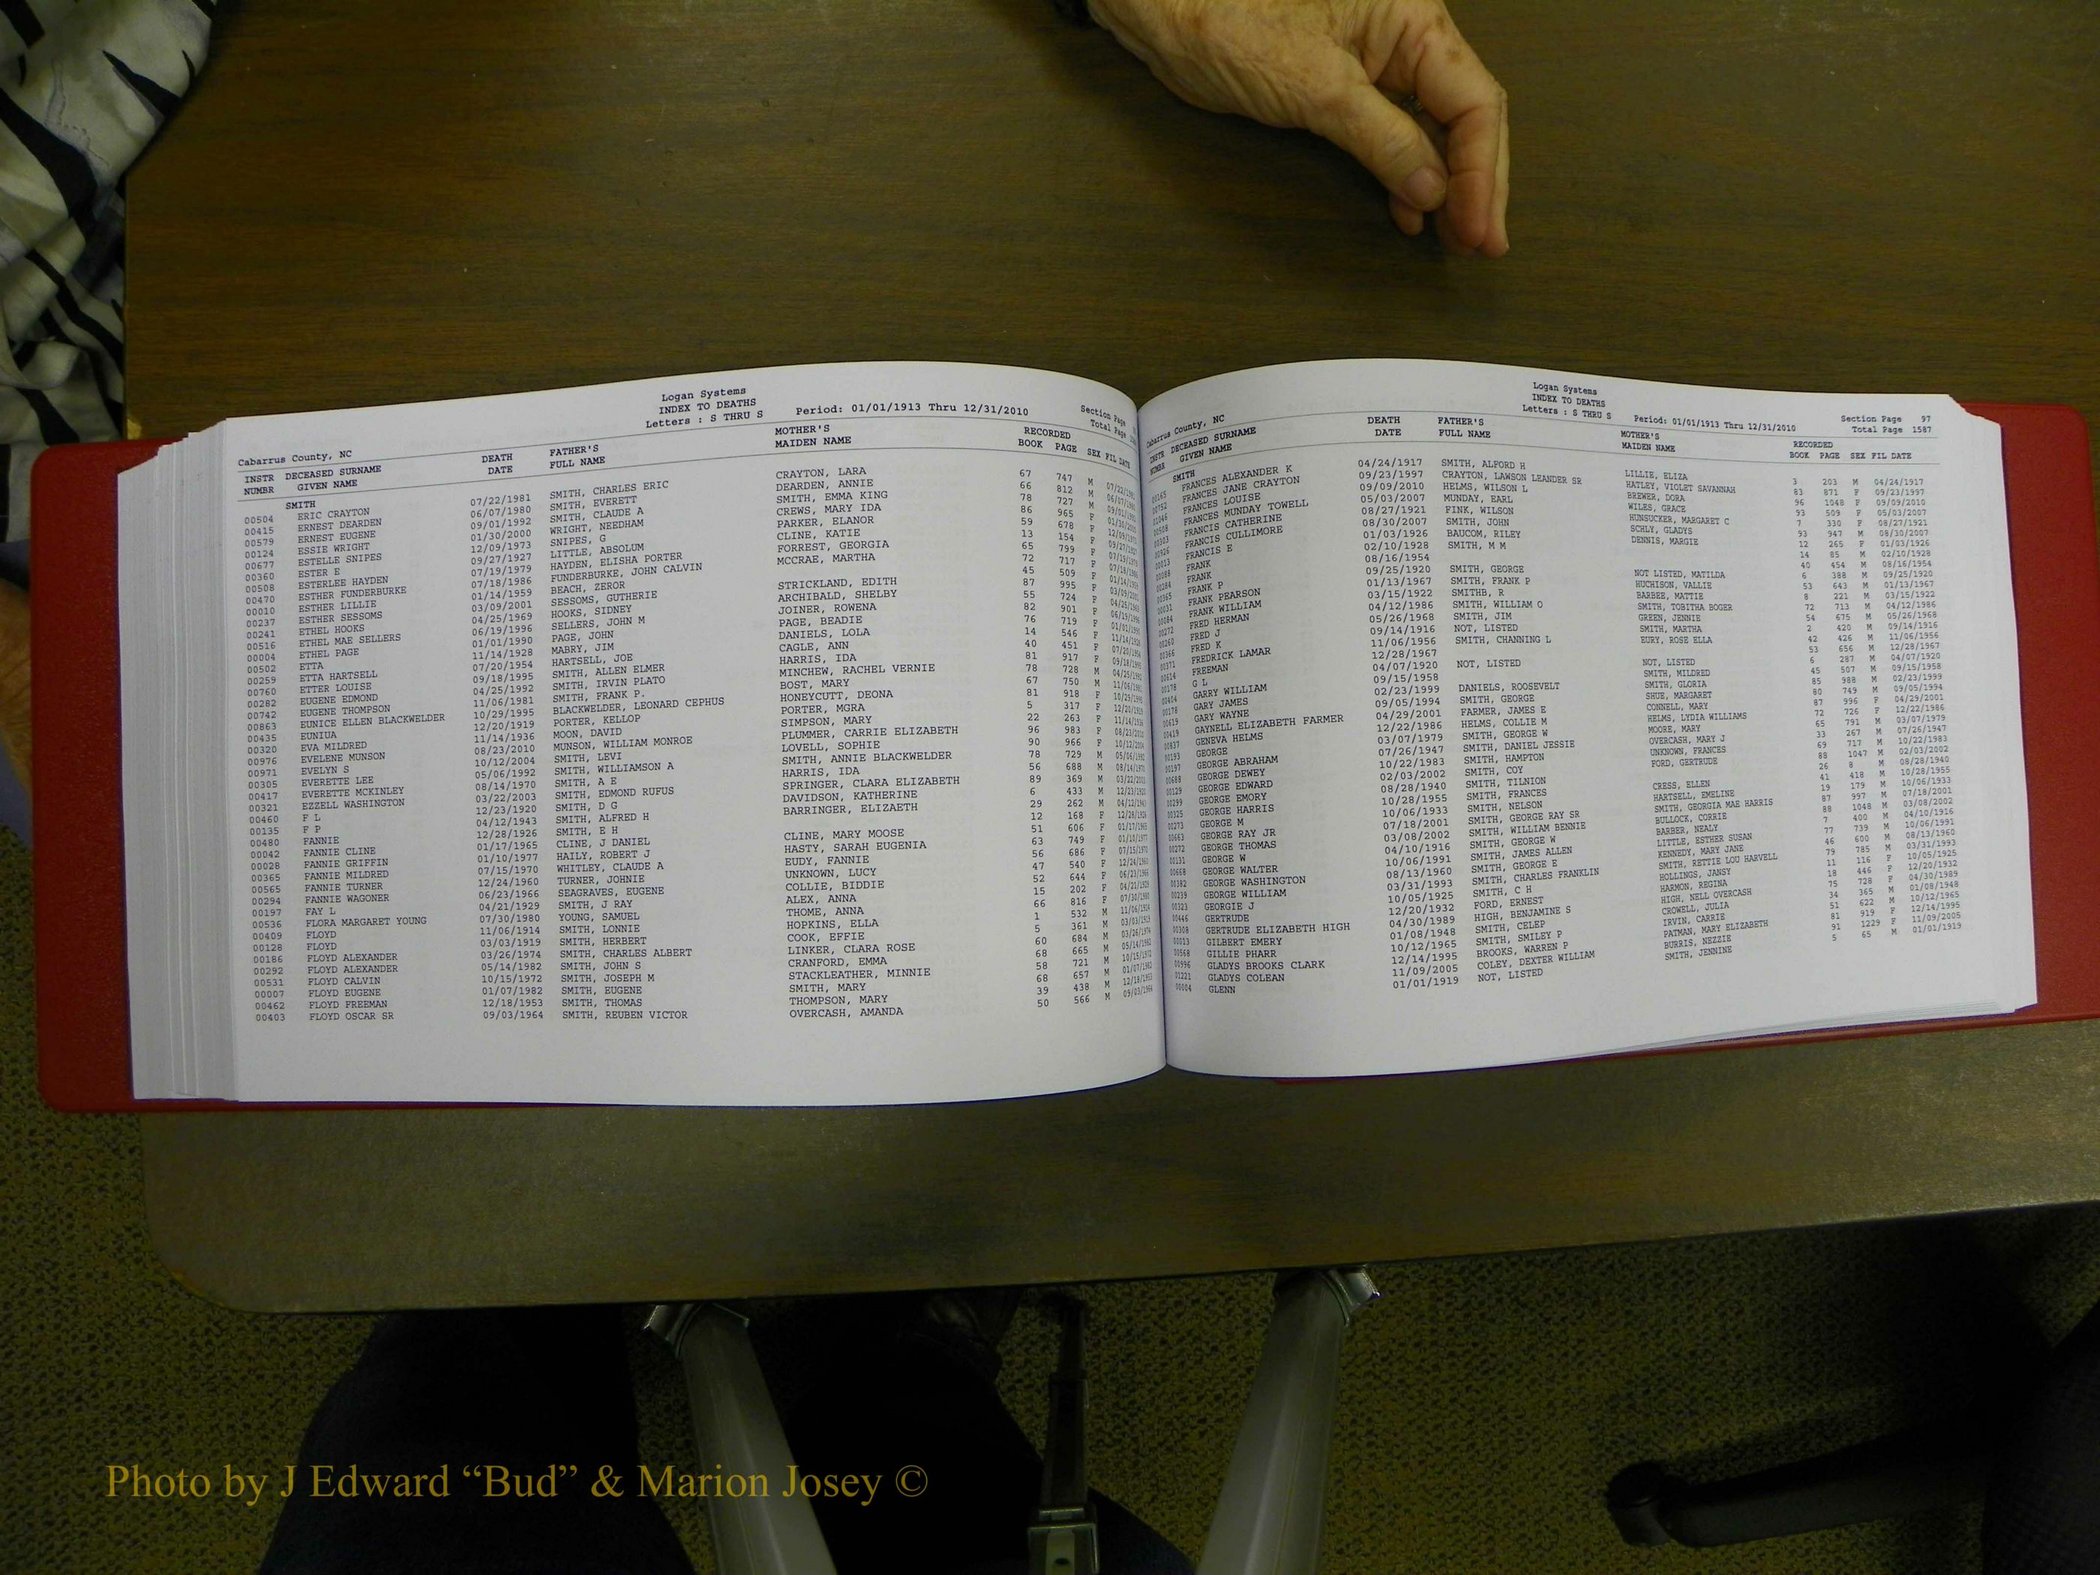 Logan Systems
INDEX TO DEATHS
Letters : S THRU S Period: 01/01/1913 Thru 12/31/2010
Section Page
Total Page
Cabarrus County, NC
INSTR DECEASED SURNAME DEATH FATHER'S MOTHER'S RECORDED
NUMBR GIVEN NAME DATE FULL NAME MAIDEN NAME BOOK PAGE SEX FIL DATE
SMITH
00504 ERIC CRAYTON 07/22/1981 SMITH, CHARLES ERIC CRAYTON, LARA 67 747 M 07/22/1981
00415 ERNEST DEARDEN 06/07/1980 SMITH, EVERETT DEARDEN, ANNIE 66 812 M
00579 ERNEST EUGENE 09/01/1992 SMITH, CLAUDE A SMITH, EMMA KING 78 727 M
00124 ESSIE WRIGHT 01/30/2000 WRIGHT, NEEDHAM CREWS, MARY IDA 86 965 F
00677 ESTELLE SNIPES 12/09/1973 SNIPES, G PARKER, ELANOR 59 678 F
00360 ESTER E 09/27/1927 LITTLE, ABSOLUM CLINE, KATIE 13 154 F
00508 ESTERLEE HAYDEN 07/19/1979 HAYDEN, ELISHA PORTER FORREST, GEORGIA 65 799 F
00470 ESTHER FUNDERBURKE 07/18/1986 FUNDERBURKE, JOHN CALVIN MCCRAE, MARTHA 72 717 F
00010 ESTHER LILLIE 01/14/1959 BEACH, ZEROR 45 509 F
00237 ESTHER SESSOMS 03/09/2001 SESSOMS, GUTHERIE STRICKLAND, EDITH 87 995 F
00241 ETHEL HOOKS 04/25/1969 HOOKS, SIDNEY ARCHIBALD, SHELBY 55 724 F
00516 ETHEL MAE SELLERS 06/19/1996 SELLERS, JOHN M JOINER, ROWENA 82 901 F
00004 ETHEL PAGE 01/01/1990 PAGE, JOHN PAGE, BEADIE 76 719 F
00502 ETTA 11/14/1928 MABRY, JIM DANIELS, LOLA 14 546 F
00259 ETTA HARTSELL 07/20/1954 HARTSELL, JOE CAGLE, ANN 40 451 F
00760 ETTER LOUISE 09/18/1995 SMITH, ALLEN ELMER HARRIS, IDA 81 917 F
00282 EUGENE EDMOND 04/25/1992 SMITH, IRVIN PLATO MINCHEW, RACHEL VERNIE 78 728 M
00742 EUGENE THOMPSON 11/06/1981 SMITH, FRANK P. BOST, MARY 67 750 M
00863 EUNICE ELLEN BLACKWELDER 10/29/1995 BLACKWELDER, LEONARD CEPHUS HONEYCUTT, DEONA 81 918 F
00435 EUNIUA 12/20/1919 PORTER, KELLOP PORTER, MGRA 5 317 F
00320 EVA MILDRED 11/14/1936 MOON, DAVID SIMPSON, MARY 22 263 F
00976 EVELENE MUNSON 08/23/2010 MUNSON, WILLIAM MONROE PLUMMER, CARRIE ELIZABETH 96 983 F
00971 EVELYN S 10/12/2004 SMITH, LEVI LOVELL, SOPHIE 90 966 F
00305 EVERETTE LEE 05/06/1992 SMITH, WILLIAMSON A SMITH, ANNIE BLACKWELDER 78 729 M
00417 EVERETTE MCKINLEY 08/14/1970 SMITH, A E HARRIS, IDA 56 688 M
00321 EZZELL WASHINGTON 03/22/2003 SMITH, EDMOND RUFUS SPRINGER, CLARA ELIZABETH 89 369 M
00460 F L 12/23/1920 SMITH, D G DAVIDSON, KATHERINE 6 433 M
00135 F P 04/12/1943 SMITH, ALFRED H BARRINGER, ELIZAETH 29 262 M
00480 FANNIE 12/28/1926 SMITH, E H 12 168 F
00042 FANNIE CLINE 01/17/1965 CLINE, J DANIEL CLINE, MARY MOOSE 51 606 F
00028 FANNIE GRIFFIN 01/10/1977 HAILY, ROBERT J HASTY, SARAH EUGENIA 63 749 F
00365 FANNIE MILDRED 07/15/1970 WHITLEY, CLAUDE A EUDY, FANNIE 56 686 F
00565 FANNIE TURNER 12/24/1960 TURNER, JOHNIE UNKNOWN, LUCY 47 540 F
00294 FANNIE WAGONER 06/23/1966 SEAGRAVES, EUGENE COLLIE, BIDDIE 52 644 F
00197 FAY L 04/21/1929 SMITH, J RAY ALEX, ANNA 15 202 F
00536 FLORA MARGARET YOUNG 07/30/1980 YOUNG, SAMUEL THOME, ANNA 66 816 F
00409 FLOYD 11/06/1914 SMITH, LONNIE HOPKINS, ELLA 1 532 M
00128 FLOYD 03/03/1919 SMITH, HERBERT COOK, EFFIE 5 361 M
00186 FLOYD ALEXANDER 03/26/1974 SMITH, CHARLES ALBERT LINKER, CLARA ROSE 60 684 M
00292 FLOYD ALEXANDER 05/14/1982 SMITH, JOHN S CRANFORD, EMMA 68 665 M
00531 FLOYD CALVIN 10/15/1972 SMITH, JOSEPH M STACKLEATHER, MINNIE 58 721 M
00007 FLOYD EUGENE 01/07/1982 SMITH, EUGENE SMITH, MARY 68 657 M
00462 FLOYD FREEMAN 12/18/1953 SMITH, THOMAS THOMPSON, MARY 39 438 M
00403 FLOYD OSCAR SR 09/03/1964 SMITH, REUBEN VICTOR OVERCASH, AMANDA 50 566 M 09/03/1964
Logan Systems
INDEX TO DEATHS
Letters : S THRU S Period: 01/01/1913 Thru 12/31/2010
Section Page 97
Total Page 1587
Cabarrus County, NC
INSTR DECEASED SURNAME DEATH FATHER'S MOTHER'S RECORDED
NUMBR GIVEN NAME DATE FULL NAME MAIDEN NAME BOOK PAGE SEX FIL DATE
SMITH
00165 FRANCES ALEXANDER K 04/24/1917 SMITH, ALFORD H LILLIE, ELIZA 3 203 M 04/24/1917
00752 FRANCES JANE CRAYTON 09/23/1997 CRAYTON, LAWSON LEANDER SR HATLEY, VIOLET SAVANNAH 83 871 F 09/23/1997
01046 FRANCES LOUISE 09/09/2010 HELMS, WILSON L BREWER, DORA 96 1048 F 09/09/2010
00508 FRANCES MUNDAY TOWELL 05/03/2007 MUNDAY, EARL WILES, GRACE 93 509 F 05/03/2007
00303 FRANCIS CATHERINE 08/27/1921 FINK, WILSON HUNSUCKER, MARGARET C 7 330 F 08/27/1921
00926 FRANCIS CULLIMORE 08/30/2007 SMITH, JOHN SCHLY, GLADYS 93 947 M 08/30/2007
00013 FRANCIS E 01/03/1926 BAUCOM, RILEY DENNIS, MARGIE 12 265 F 01/03/1926
00088 FRANK 02/10/1928 SMITH, M M 14 85 M 02/10/1928
00284 FRANK 08/16/1954 40 454 M 08/16/1954
00365 FRANK P 09/25/1920 SMITH, GEORGE NOT LISTED, MATILDA 6 388 M 09/25/1920
00031 FRANK PEARSON 01/13/1967 SMITH, FRANK P HUCHISON, VALLIE 53 643 M 01/13/1967
00084 FRANK WILLIAM 03/15/1922 SMITHB, R BARBEE, MATTIE 8 221 M 03/15/1922
00272 FRED HERMAN 04/12/1986 SMITH, WILLIAM O SMITH, TOBITHA BOGER 72 713 M 04/12/1986
00260 FRED J 05/26/1968 SMITH, JIM GREEN, JENNIE 54 675 M 05/26/1968
00366 FRED K 09/14/1916 NOT, LISTED SMITH, MARTHA 2 420 M 09/14/1916
00371 FREDRICK LAMAR 11/06/1956 SMITH, CHANNING L EURY, ROSE ELLA 42 426 M 11/06/1956
00614 FREEMAN 12/28/1967 53 656 M 12/28/1967
00178 G L 04/07/1920 NOT, LISTED NOT, LISTED 6 287 M 04/07/1920
00404 GARRY WILLIAM 09/15/1958 SMITH, MILDRED 45 507 M 09/15/1958
00178 GARY JAMES 02/23/1999 DANIELS, ROOSEVELT SMITH, GLORIA 85 988 M 02/23/1999
00619 GARY WAYNE 09/05/1994 SMITH, GEORGE SHUE, MARGARET 80 749 M 09/05/1994
00419 GAYNELL ELIZABETH FARMER 04/29/2001 FARMER, JAMES E CONNELL, MARY 87 996 F 04/29/2001
00837 GENEVA HELMS 12/22/1986 HELMS, COLLIE M HELMS, LYDIA WILLIAMS 72 726 F 12/22/1986
00193 GEORGE 03/07/1979 SMITH, GEORGE W MOORE, MARY 65 791 M 03/07/1979
00197 GEORGE ABRAHAM 07/26/1947 SMITH, DANIEL JESSIE OVERCASH, MARY J 33 267 M 07/26/1947
00688 GEORGE DEWEY 10/22/1983 SMITH, HAMPTON UNKNOWN, FRANCES 69 717 M 10/22/1983
00129 GEORGE EDWARD 02/03/2002 SMITH, COY FORD, GERTRUDE 88 1047 M 02/03/2002
00299 GEORGE EMORY 08/28/1940 SMITH, TILNION 26 8 M 08/28/1940
00325 GEORGE HARRIS 10/28/1955 SMITH, FRANCES CRESS, ELLEN 41 418 M 10/28/1955
00273 GEORGE M 10/06/1933 SMITH, NELSON HARTSELL, EMELINE 19 179 M 10/06/1933
00663 GEORGE RAY JR 07/18/2001 SMITH, GEORGE RAY SR SMITH, GEORGIA MAE HARRIS 87 997 M 07/18/2001
00272 GEORGE THOMAS 03/08/2002 SMITH, WILLIAM BENNIE BULLOCK, CORRIE 88 1048 M 03/08/2002
00131 GEORGE W 04/10/1916 SMITH, GEORGE W BARBER, NEALY 7 400 M 04/10/1916
00668 GEORGE WALTER 10/06/1991 SMITH, JAMES ALLEN LITTLE, ESTHER SUSAN 77 739 M 10/06/1991
00382 GEORGE WASHINGTON 08/13/1960 SMITH, GEORGE E KENNEDY, MARY JANE 46 600 M 08/13/1960
00239 GEORGE WILLIAM 03/31/1993 SMITH, CHARLES FRANKLIN SMITH, RETTIE LOU HARVELL 79 785 M 03/31/1993
00323 GEORGIE J 10/05/1925 SMITH, C H HOLLINGS, JANSY 11 116 F 10/05/1925
00446 GERTRUDE 12/20/1932 FORD, ERNEST HARMON, REGINA 18 446 F 12/20/1932
00308 GERTRUDE ELIZABETH HIGH 04/30/1989 HIGH, BENJAMINE S HIGH, NELL OVERCASH 75 728 F 04/30/1989
00013 GILBERT EMERY 01/08/1948 SMITH, CELEP CROWELL, JULIA 34 365 M 01/08/1948
00568 GILLIE PHARR 10/12/1965 SMITH, SMILEY P IRVIN, CARRIE 51 622 M 10/12/1965
00996 GLADYS BROOKS CLARK 12/14/1995 BROOKS, WARREN P PATMAN, MARY ELIZABETH 81 919 F 12/14/1995
01221 GLADYS COLEAN 11/09/2005 COLEY, DEXTER WILLIAM BURRIS, NEZZIE 91 1229 F 11/09/2005
00004 GLENN 01/01/1919 NOT, LISTED SMITH, JENNINE 5 65 M 01/01/1919
Photo by J Edward “Bud” & Marion Josey ©